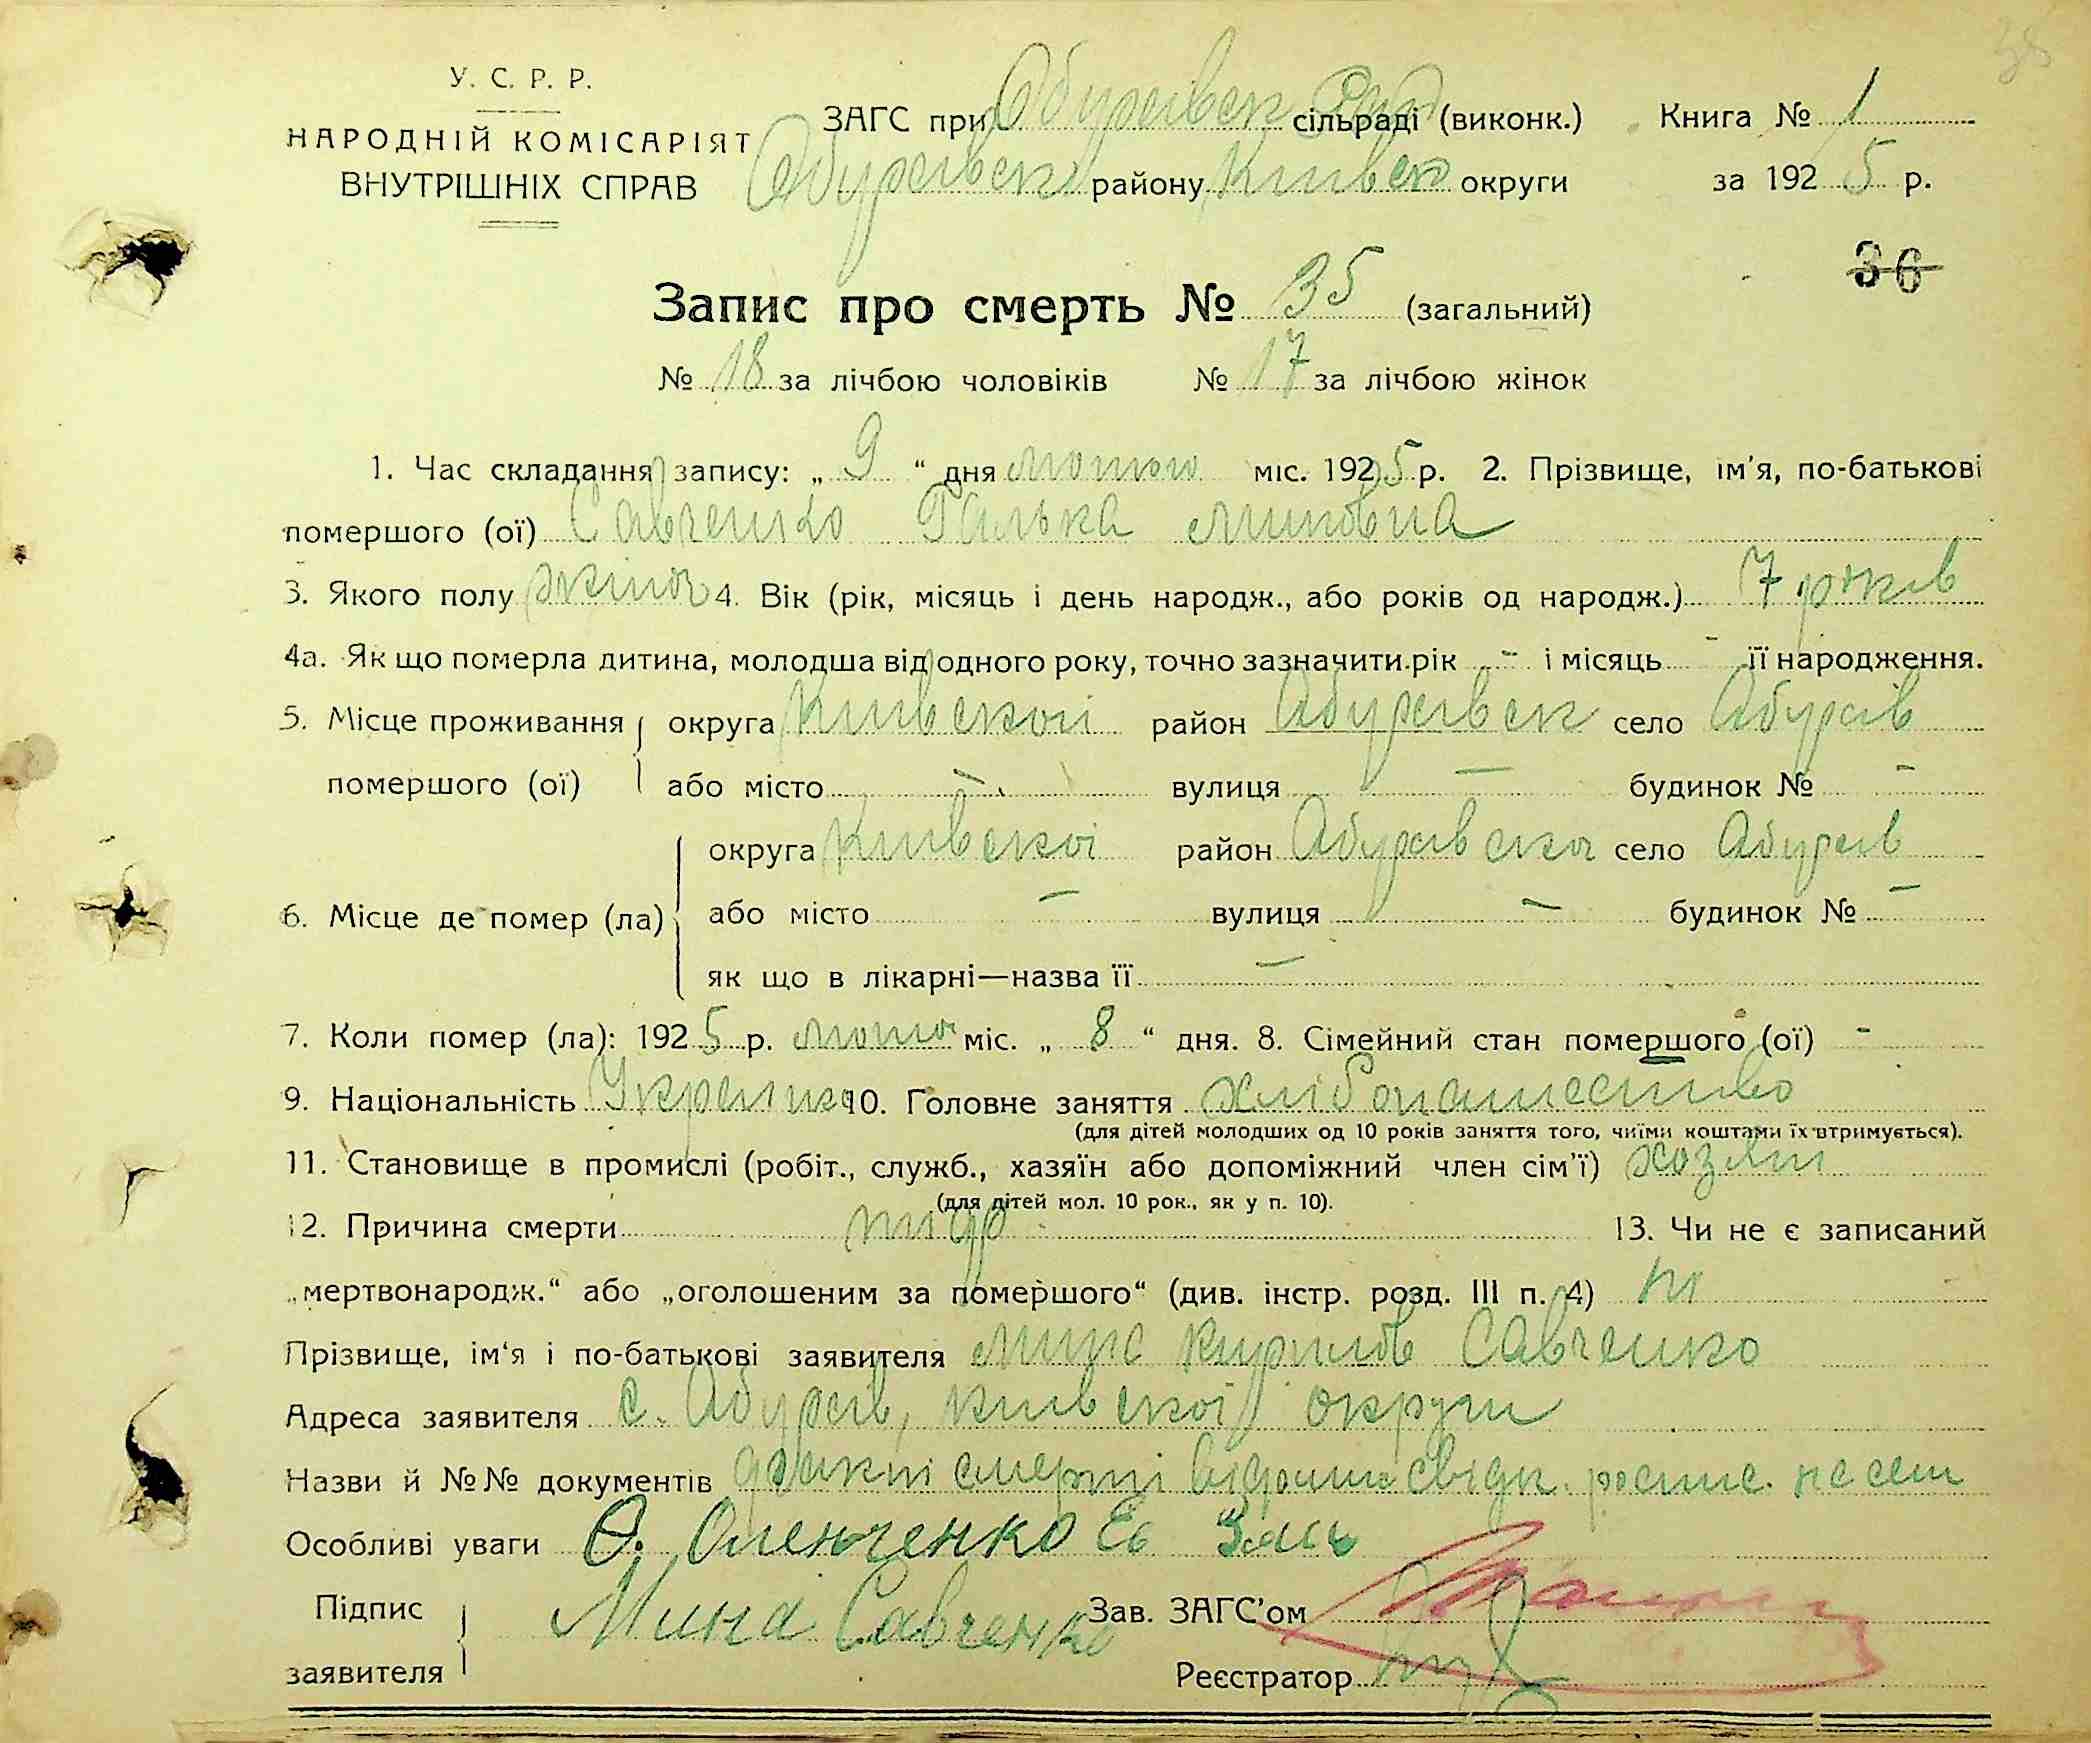 38
У. С. Р. Р.
НАРОДНІЙ КОМІСАРІЯТ
ВНУТРІШНІХ СПРАВ
ЗАГС при Обухівск сільраді (виконк.) Книга № 1
Обухівск району Київск округи за 1925 р.
36
Запис про смерть № 35 (загальний)
№ 18 за лічбою чоловіків № 17 за лічбою жінок
1. Час складання запису: „ 9 “ дня лютого міс. 1925 р. 2. Прізвище, ім'я, по-батькові
помершого (ої) Савченко Галька Миновна
3. Якого полу жіноч 4. Вік (рік, місяць і день народж., або років од народж.) 7 років
4а. Як що померла дитина, молодша від одного року, точно зазначити рік - і місяць - її народження.
5. Місце проживання округа Київскої район Абухівск село Абухів
помершого (ої) або місто - вулиця - будинок № -
округа Київскої район Абухівско село Абухів
6. Місце де помер (ла) або місто - вулиця - будинок № -
як що в лікарні—назва її -
7. Коли помер (ла): 1925 р. лютого міс. „ 8 “ дня. 8. Сімейний стан помершого (ої) -
9. Національність 10. Головне заняття хлібопашество
(для дітей молодших од 10 років заняття того, чиїми коштами їх втримується).
11. Становище в промислі (робіт., служб., хазяїн або допоміжний член сім'ї) хозяїн
(для дітей мол. 10 рок., як у п. 10).
12. Причина смерти 13. Чи не є записаний
„мертвонародж.“ або „оголошеним за помершого“ (див. інстр. розд. III п. 4) ні
Прізвище, ім'я і по-батькові заявителя Мина Кирилов Савченко
Адреса заявителя с. Абухів, Київскої округи
Назви й №№ документів смерти свідк. не
Особливі уваги О. Оленченко
Підпис Мина Савченко Зав. ЗАГС'ом
заявителя Реєстратор